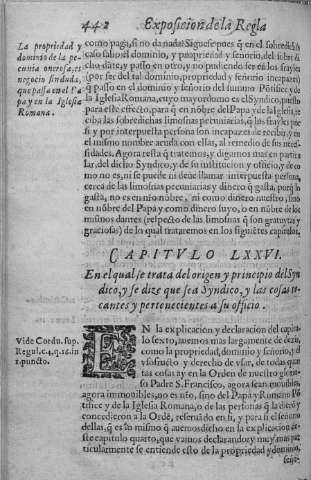 442 Exposicion de la Regla
La propriedad y
dominio de la pe-
cunia onerosa, es
negocio sin duda,
que passa en el Pa
pa y en la Iglesia
Romana.
como paga, si no da nada: Siguese pues q̃ en el sobredicho
caso salio el dominio, y propriedad y señorio, del sobredi
cho date, y passo en otro, y no pudiendo ser en los frayles
(por ser del tal dominio, propriedad y señorio incapaces)
q̃ passo en el dominio y señorio del summo Põtifice y de
la Iglesia Romana, cuyo mayordomo es el Syndico, puesto
para este effecto, para q̃ en nõbre del Papa y de la Iglesia, re
ciba las sobredichas limosnas pecuniarias, q̃ los frayles por
si y por interpuesta person son incapazes de recibir, y en
el mismo nombre acuda con ellas, al remedio de sus nece-
sidades. Agora resta q̃ tratemos, y digamos mas en particu
lar, del dicho Syndico, y de su institucion y officio, y de co
mo no es, ni se puede ni deue llamar interpuesta persona,
cerca de las limosnas pecuniarias y dinero q̃ gasta, porq̃ lo
gasta, no es en nr̃o nõbre, ni como dinero nuestro, sino
en nõbre del Papa y como dinero suyo, o en nõbre de los
mismos dantes (respecto de las limosnas q̃ son gratuytas y
graciosas) de lo qual trataremos en los siguiẽtes capitulos.
CAPITVLO LXXVI.
En el qual se trata del origen y principio del Syn
dico, y se dize que sea Syndico, y las cosas to-
cantes y pertenecientes a su officio.
Vide Cordu. sup.
Regul. c. 4. q. 16. in
2. puncto.
EN la explicacion y declaracion del capitu
lo sexto, auemos mas largamente de dezir,
como la propriedad, dominio y señorio, y el
vsufructo y derecho de vsar, de todas quan
tas cosas ay en la Orden de nuestro glorio-
so Padre S. Francisco, agora sean mouibles,
agora immobiles, no es nr̃o, sino del Papa y Romano Põ
tifice y de la Iglesia Romana, o de las personas q̃ la dierõ y
concedieron a la Ordẽ, reseruãdo en si, y para si el señorio
dellas, q̃ es lo mismo q̃ auemos dicho en la explicacion de
ste capitulo quarto, que vamos declarando: y muy mas par
ticularmente se entiende esto de la propriedad y dominio,
seño-